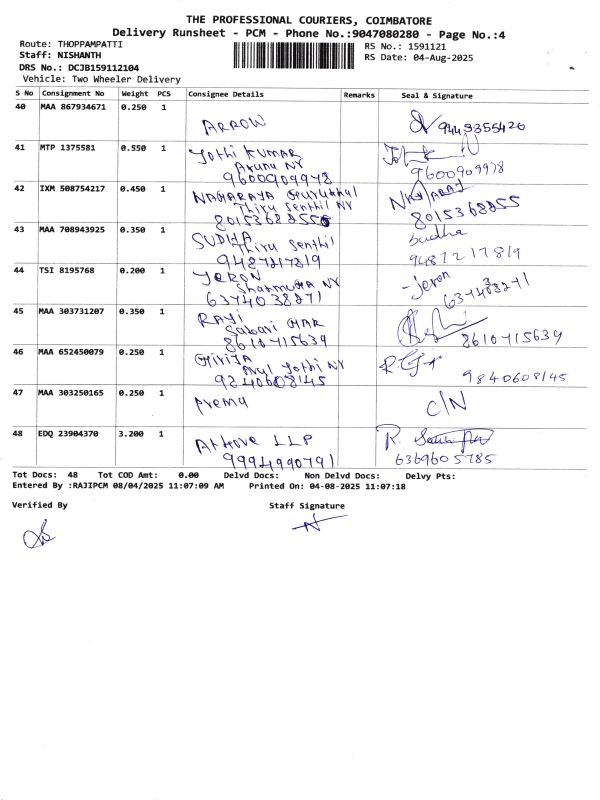 THE PROFESSIONAL COURIERS, COIMBATORE
Delivery Runsheet - PCM - Phone No.:9047080280 - Page No.:4
Route: THOPPAMPATTI
RS No.: 1591121
Staff: NISHANTH
RS Date: 04-Aug-2025
DRS No.: DCJB159112104
Vehicle: Two Wheeler Delivery
S No Consignment No Weight PCS Consignee Details Remarks Seal & Signature
40 MAA 867934671 0.250 1
ARROW 9443355426
41 MTP 1375581 0.550 1
Jothi KUMAR
Aruna NY
9600909978 9600909978
42 IXM 508754217 0.450 1
NAGARAJA Gurukkal NAGARAJ
Thiru Senthil NY
8015368855 8015368855
43 MAA 708943925 0.350 1
SUDHA Sudha
Thiru Senthil
9487217819 9487217819
44 TSI 8195768 0.200 1
JERON Jeron
Shanmuga NY
6374038271 6374038271
45 MAA 303731207 0.350 1
RAJI
Sabari GAR
8610715639 8610715639
46 MAA 652450079 0.250 1
GIRIJA
Arul Jothi NY
9840608145 9840608145
47 MAA 303250165 0.250 1
Prema C/N
48 EDQ 23904370 3.200 1
LLP R.
9994990791 6369605785
Tot Docs: 48 Tot COD Amt: 0.00 Delvd Docs: Non Delvd Docs: Delvy Pts:
Entered By :RAJIPCM 08/04/2025 11:07:09 AM Printed On: 04-08-2025 11:07:18
Verified By Staff Signature